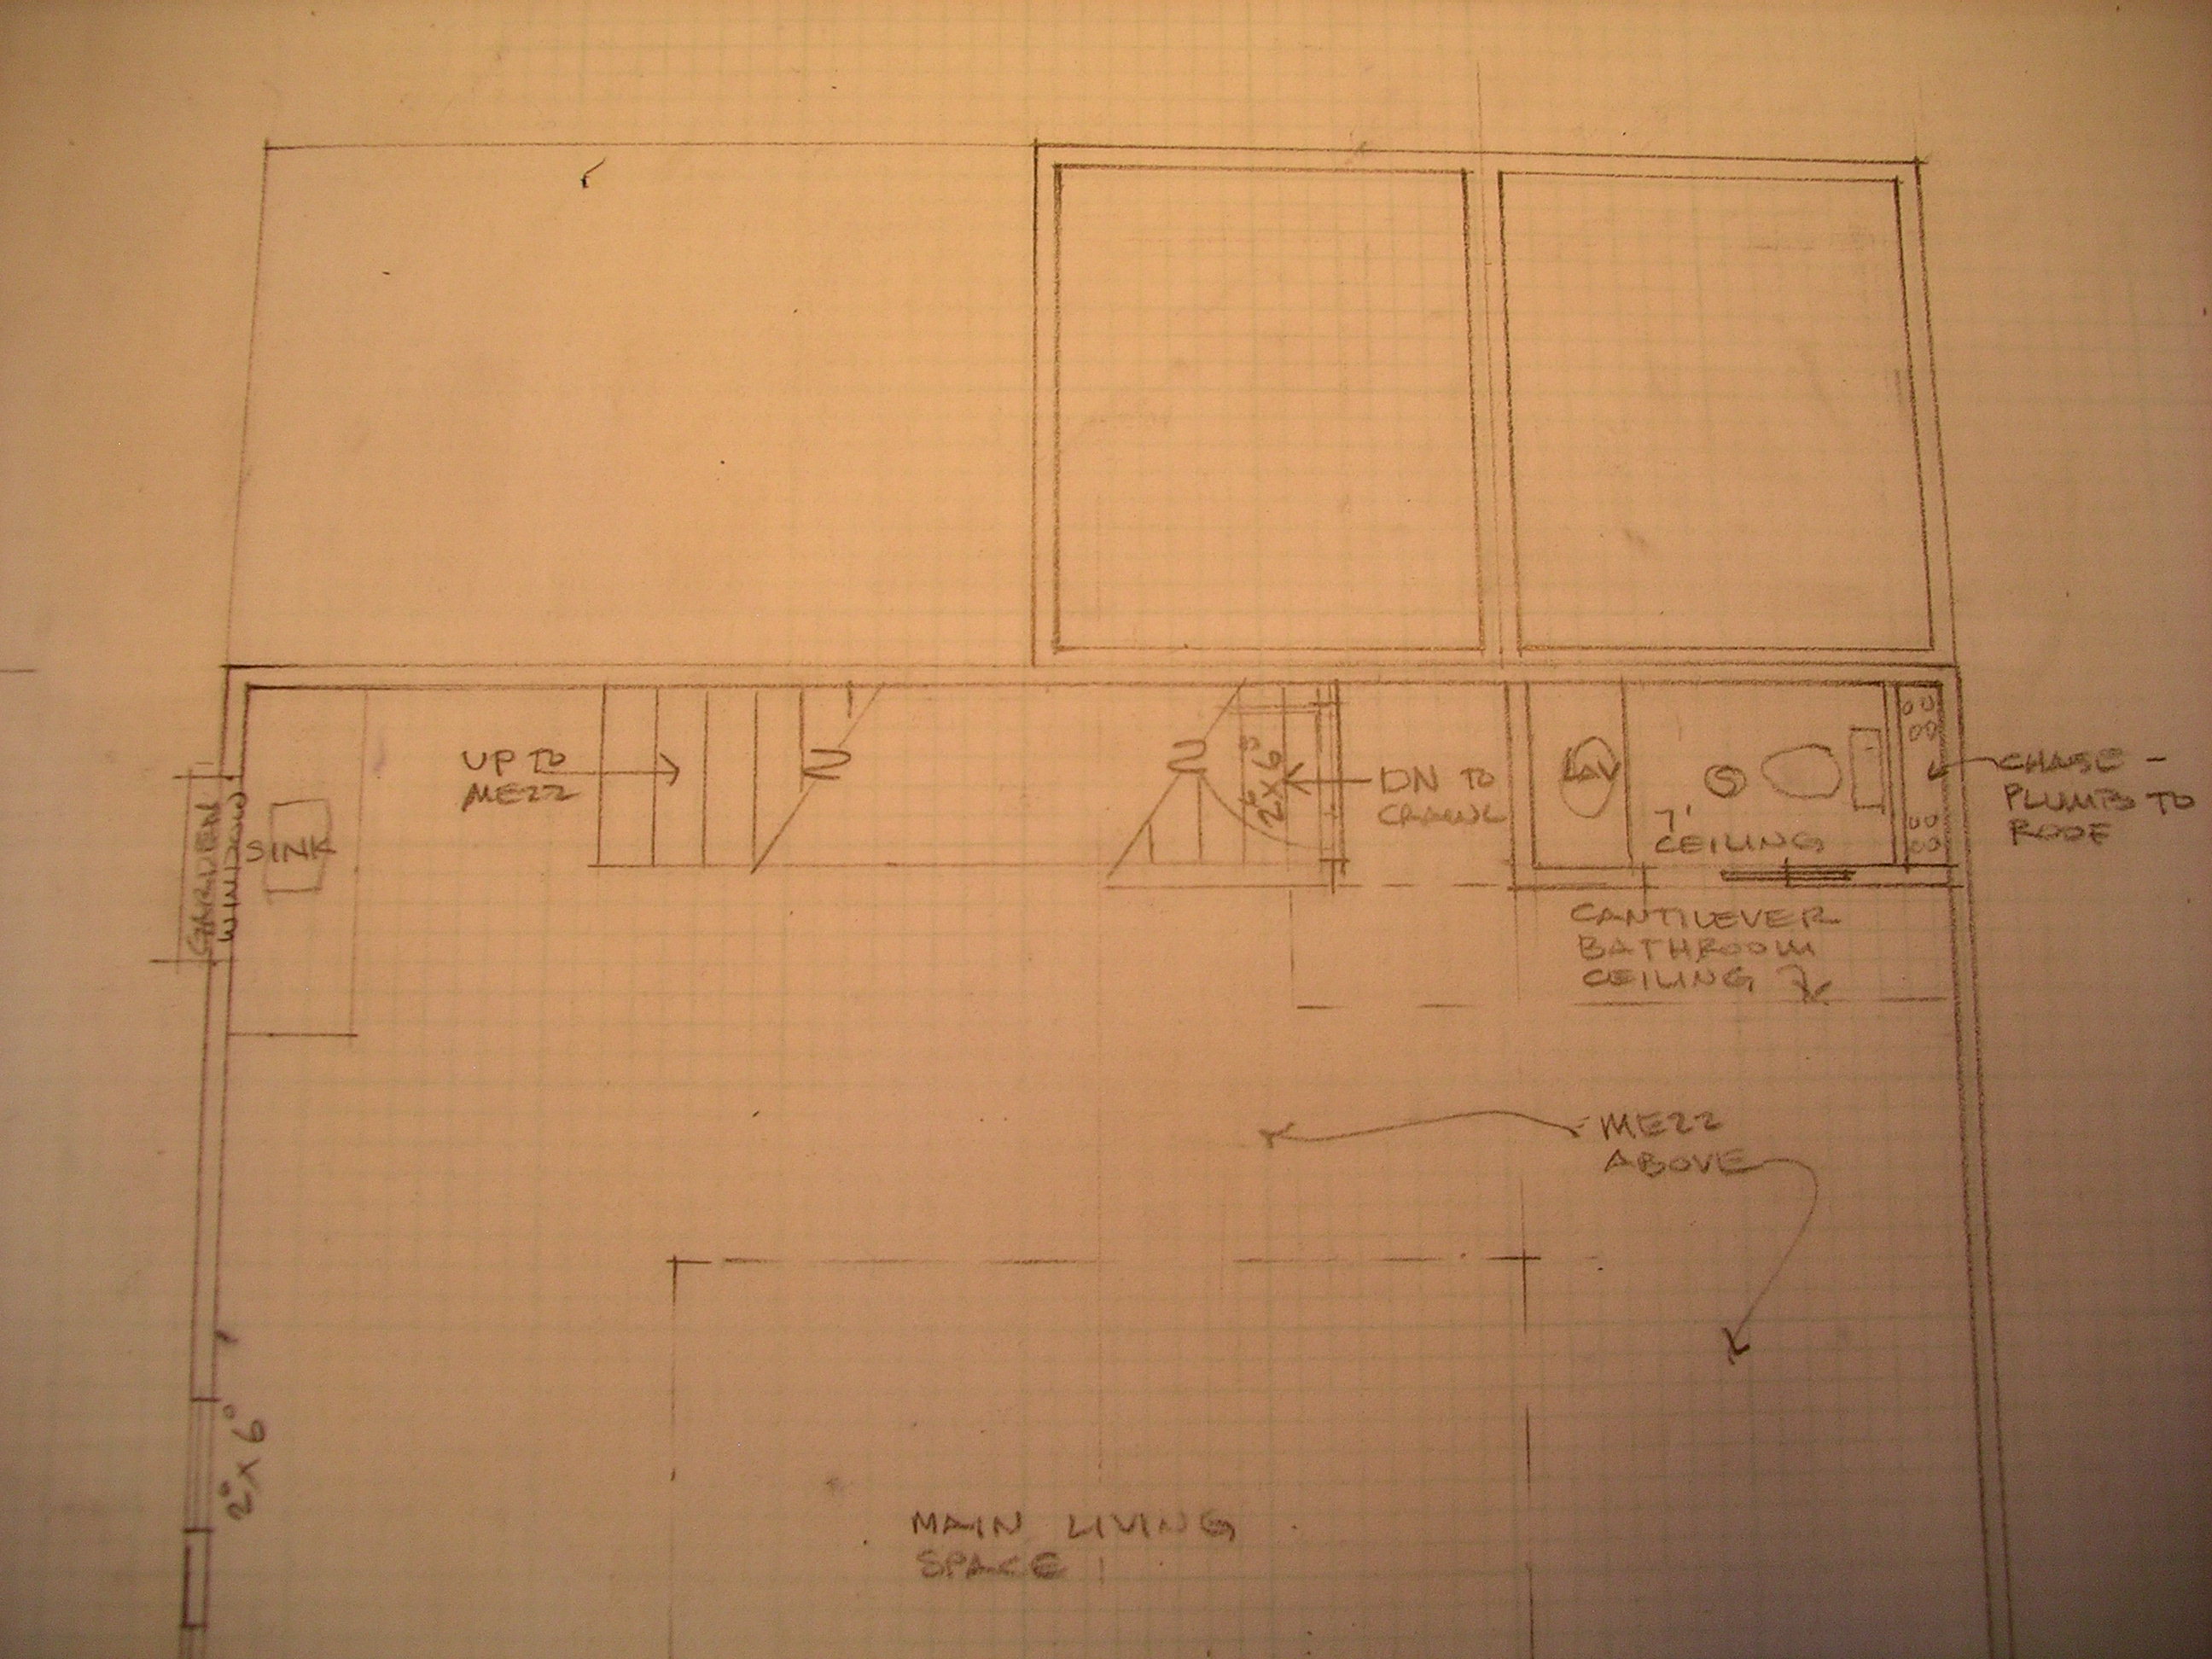 UP TO
MEZZ
GARDEN
WINDOW
SINK
2⁰ x 6⁸
DN TO
CRAWL
LAV
7'
CEILING
CHASE –
PLUMB TO
ROOF
CANTILEVER
BATHROOM
CEILING
MEZZ
ABOVE
2⁰ x 6⁰
MAIN LIVING
SPACE